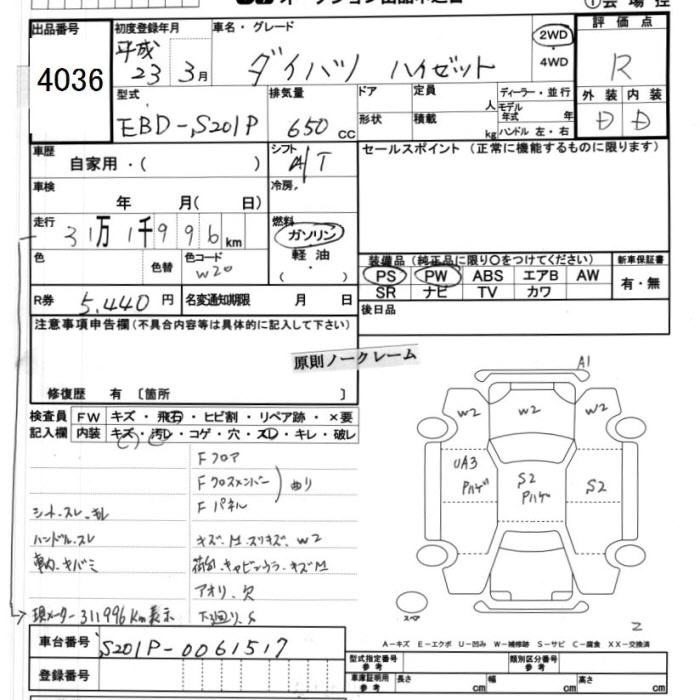 出品番号
4036
初度登録年月
平成
23 3月
車名・グレード
ダイハツ ハイゼット
2WD
・
4WD
評価点
R
外装 内装
D D
型式
EBD-S201P
排気量
650 CC
ドア
形状
定員 人
積載 kg
ディーラー・並行
モデル年式 年
ハンドル 左・右
車歴
自家用・( )
シフト
A/T
セールスポイント(正常に機能するものに限ります)
車検
年 月( 日)
冷房
走行
31万1千996km
燃料
ガソリン
軽油
・
( )
色
色替
色コード
W20
装備品(純正品に限り○をつけてください)
PS PW ABS エアB AW
SR ナビ TV カワ
新車保証書
有・無
R券 5,440円
名変通知期限 月 日
後日品
注意事項申告欄(不具合内容等は具体的に記入して下さい)
原則ノークレーム
修復歴 有〔箇所 〕
検査員 FW キズ・飛石・ヒビ割・リペア跡・×要
記入欄 内装 キズ・汚レ・コゲ・穴・スレ・キレ・破レ
Fフロア
Fクロスメンバー 曲り
Fパネル
シート.スレ.キレ
ハンドル.スレ
キズ.M.スリキズ.W2
車内.キバミ
荷台.キャビンウラ.キズM
アオリ.欠
現メーター311996Km表示
下廻り.S
A1
W2
W2
W2
UA3
Pハゲ
S2
Pハゲ
S2
スペア
2
A-キズ E-エクボ U-凹み W-補修跡 S-サビ C-腐食 XX-交換済
車台番号 S201P-0061517
登録番号
型式指定番号
参考
類別区分番号
参考
車庫証明用
参考
長さ cm 幅 cm 高さ cm